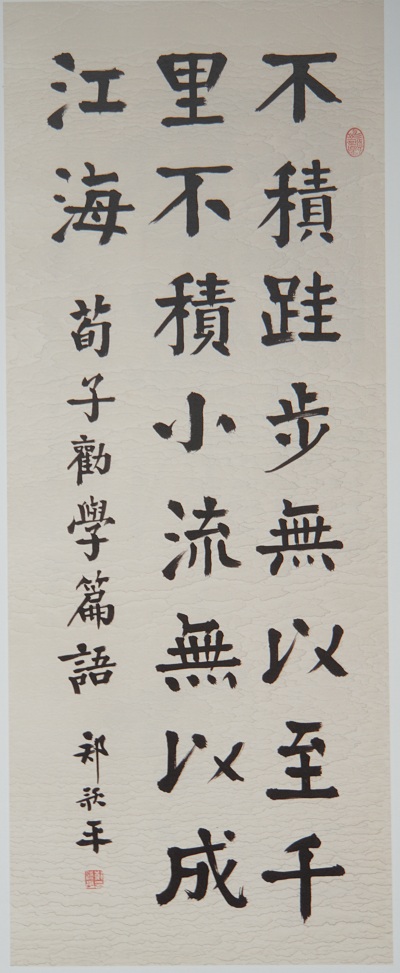 不積跬步無以至千
里不積小流無以成
江海
荀子勸學篇語
郑歌平